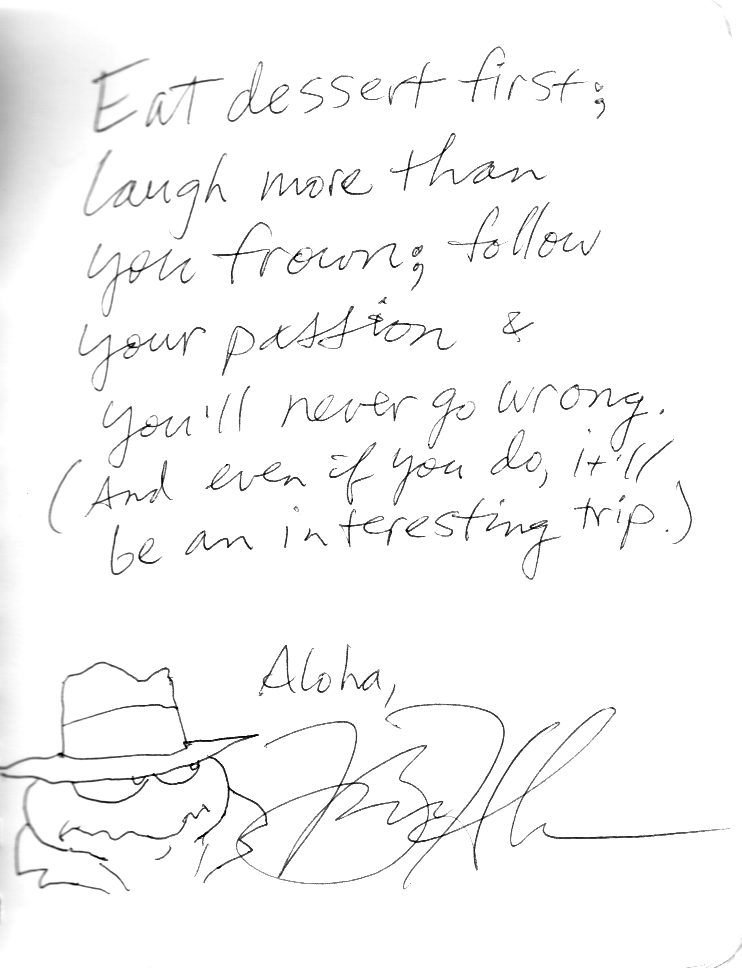 Eat dessert first;
laugh more than
you frown; follow
your passion &
you'll never go wrong.
(And even if you do, it'll
be an interesting trip.)
Aloha,